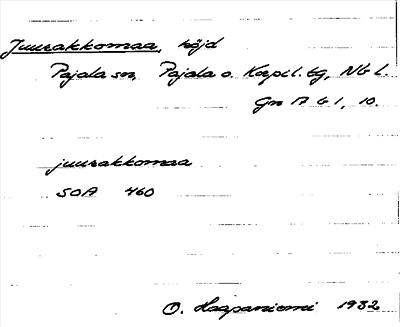 Juurakkomaa, höjd
Pajala sn, Pajala o. Korpil. tg, Nb L.
Gm A G 1, 10.
juurakkomaa
SOA 460
O. Haapaniemi 1932